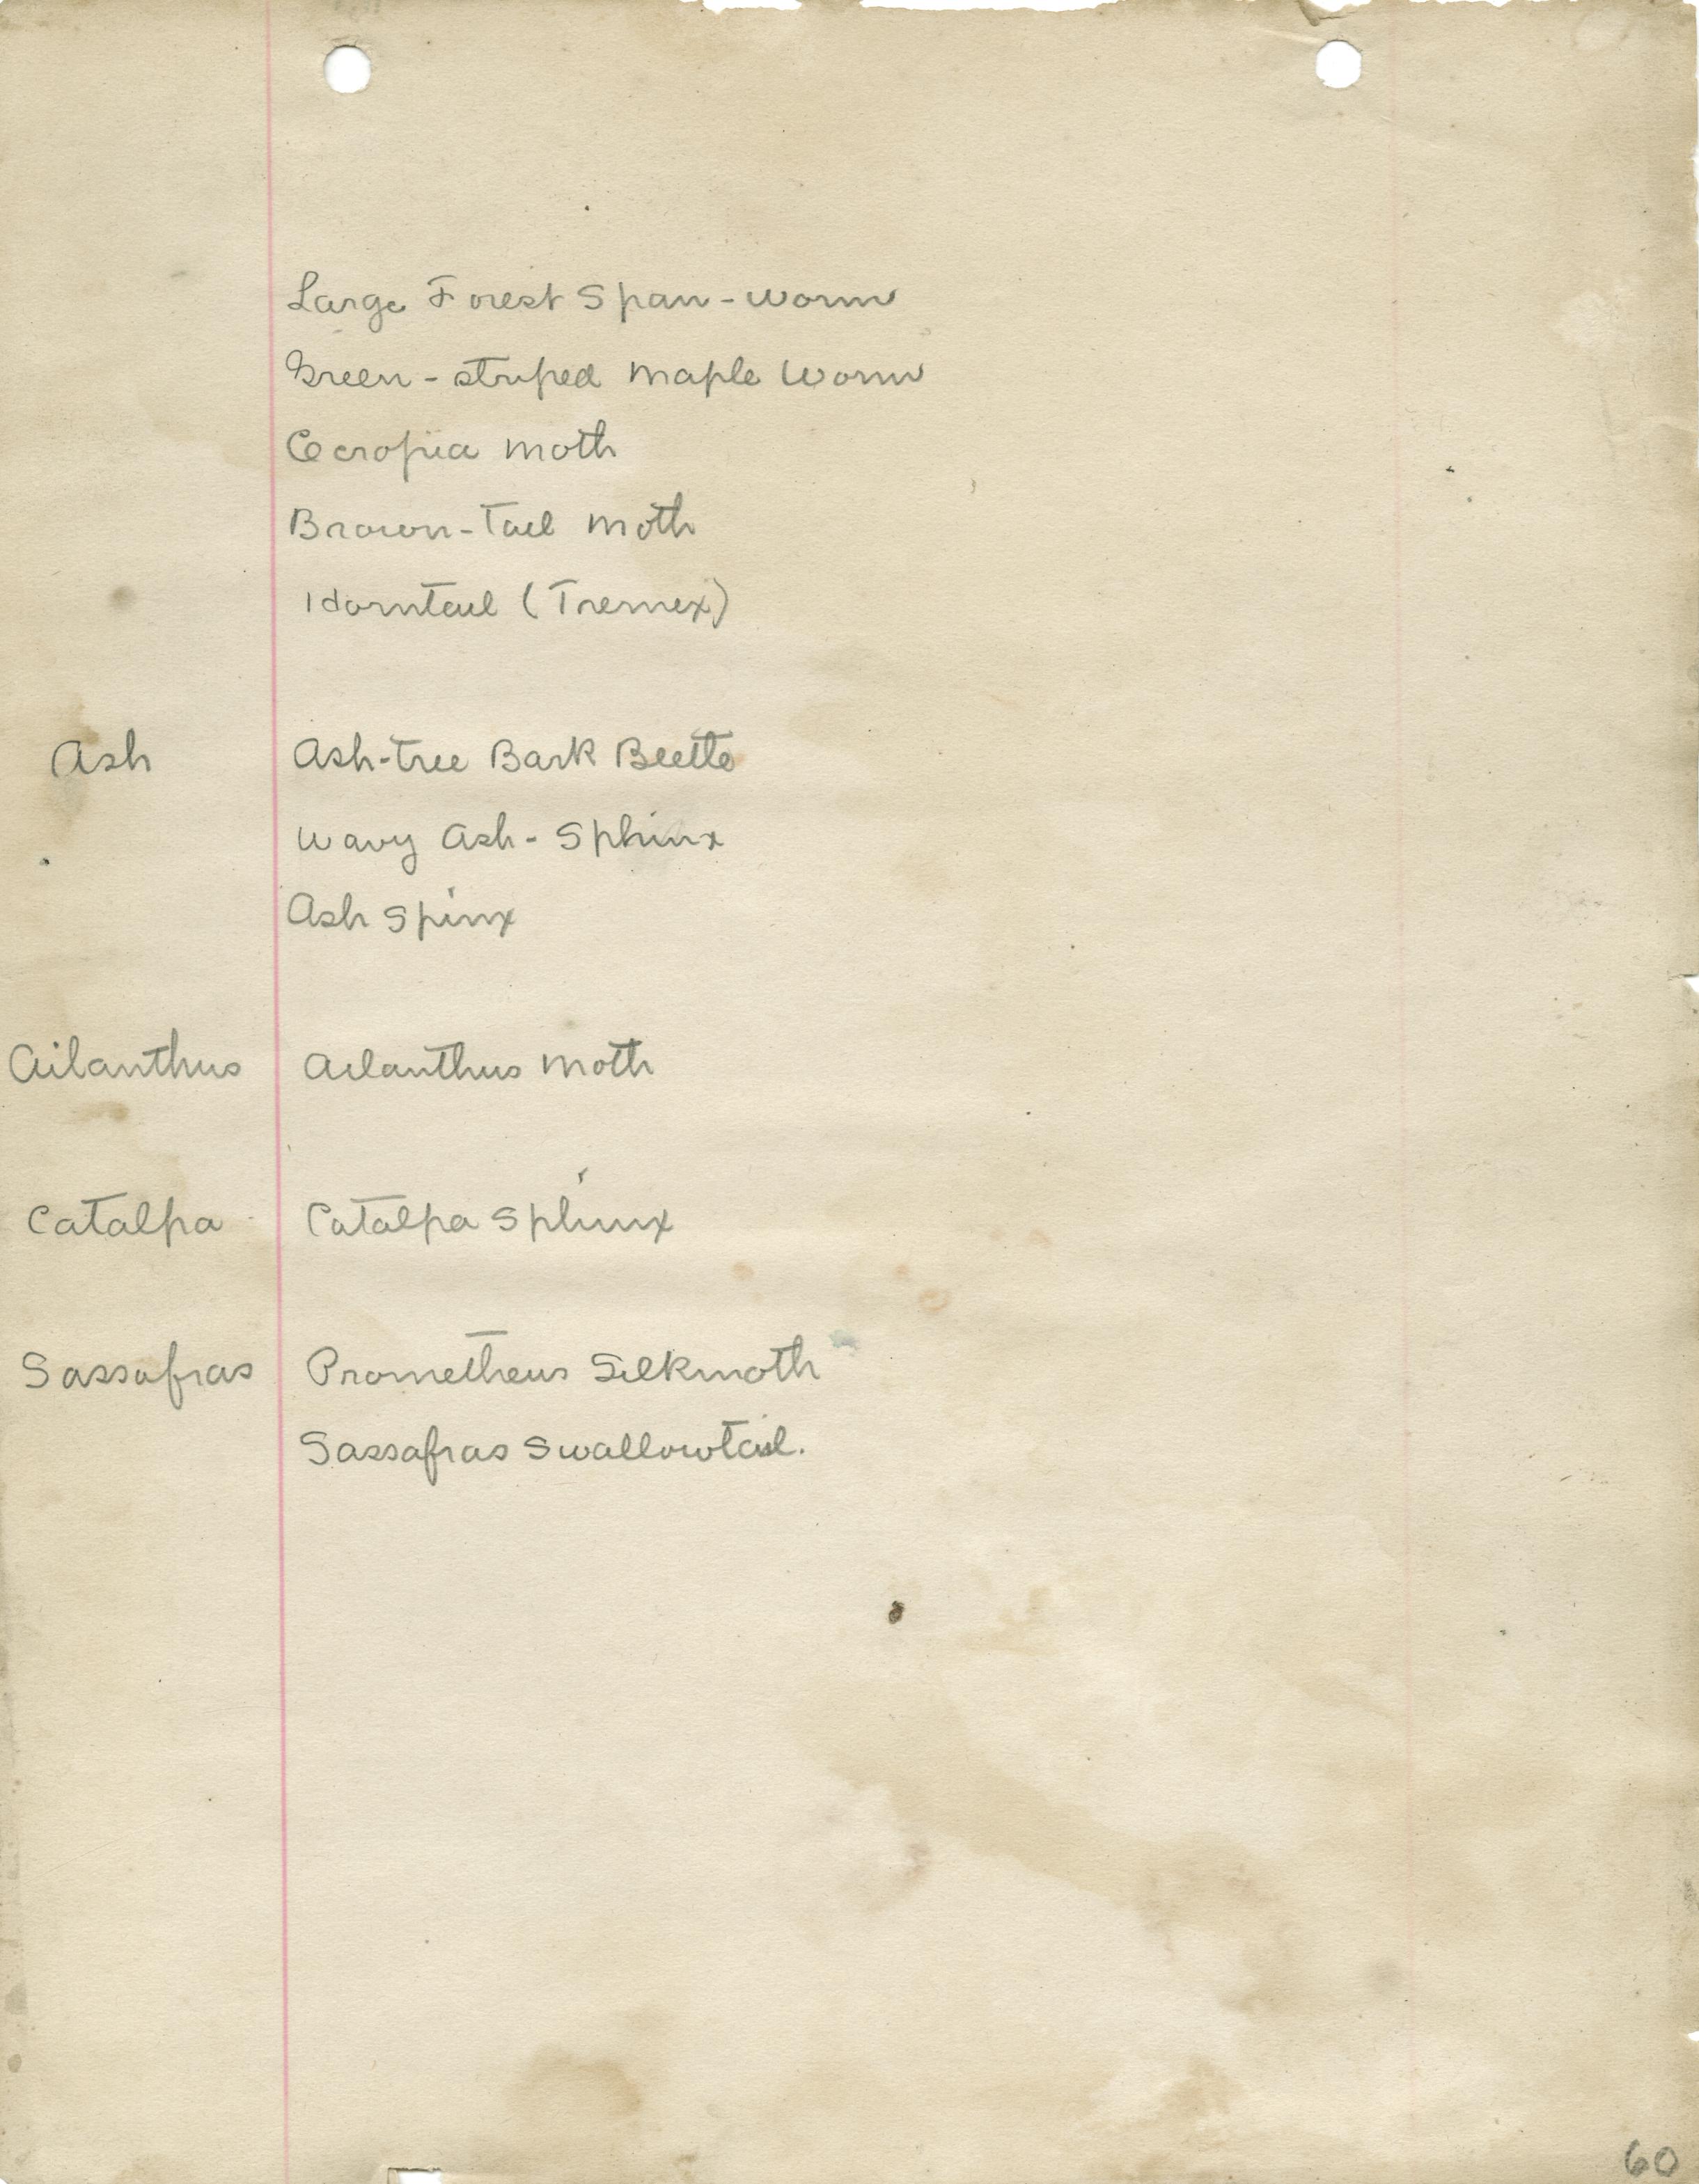 Large Forest Span-worm
Green-striped Maple Worm
Cecropia Moth
Brown-Tail Moth
Horntail (Tremex)
Ash Ash-tree Bark Beetle
Wavy Ash-Sphinx
Ash Spinx
Ailanthus Ailanthus Moth
Catalpa Catalpa Sphinx
Sassafras Prometheus Silkmoth
Sassafras Swallowtail.
60